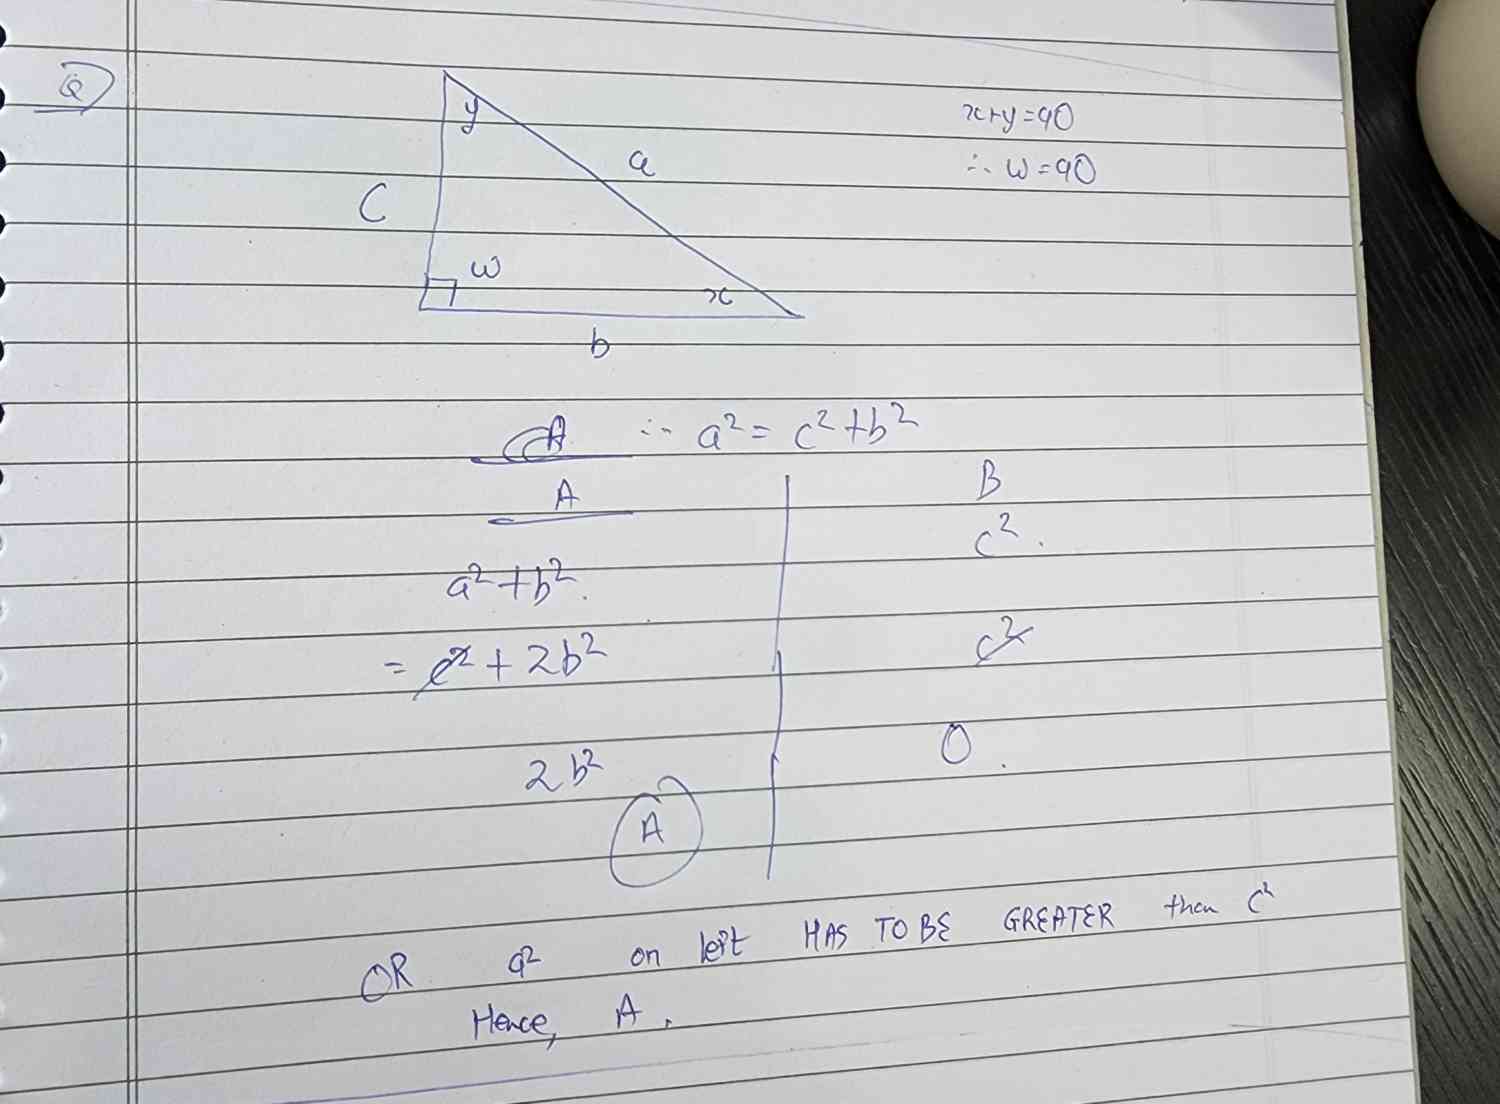 Q
y
x+y=90
a
∴ w=90
C
w
x
b
A ∴ a² = c²+b²
A B
c².
a²+b².
= c² + 2b² c²
2b² 0.
A
OR a² on left HAS TO BE GREATER than c²
Hence, A.